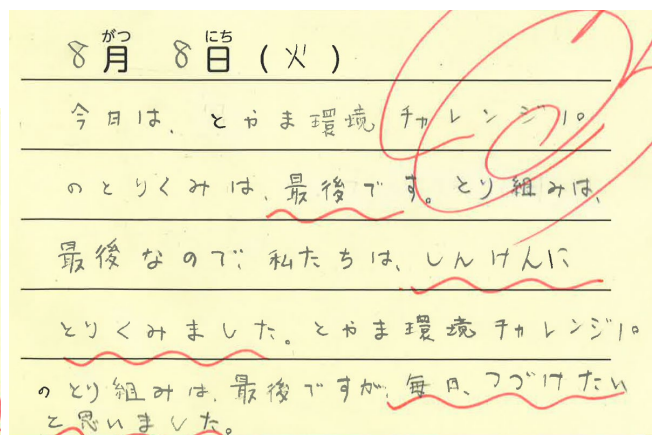 8月 8日(火)
がつ にち
今日は、とやま環境チャレンジ10
のとりくみは、最後です。とり組みは、
最後なので、私たちは、しんけんに
とりくみました。とやま環境チャレンジ10
のとり組みは、最後ですが、毎日、つづけたい
と思いました。